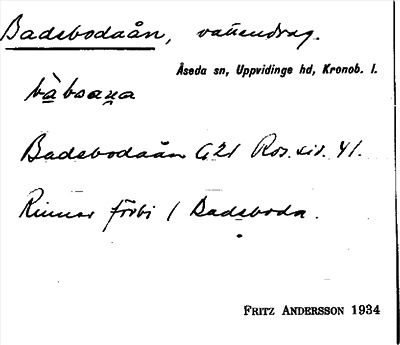 Badebodaån, vattendrag.
Åseda sn, Uppvidinge hd, Kronob. l.
bàbsana
Badebodaån G21 Ros. sid. 41.
Rinner förbi / Badeboda.
FRITZ ANDERSSON 1934